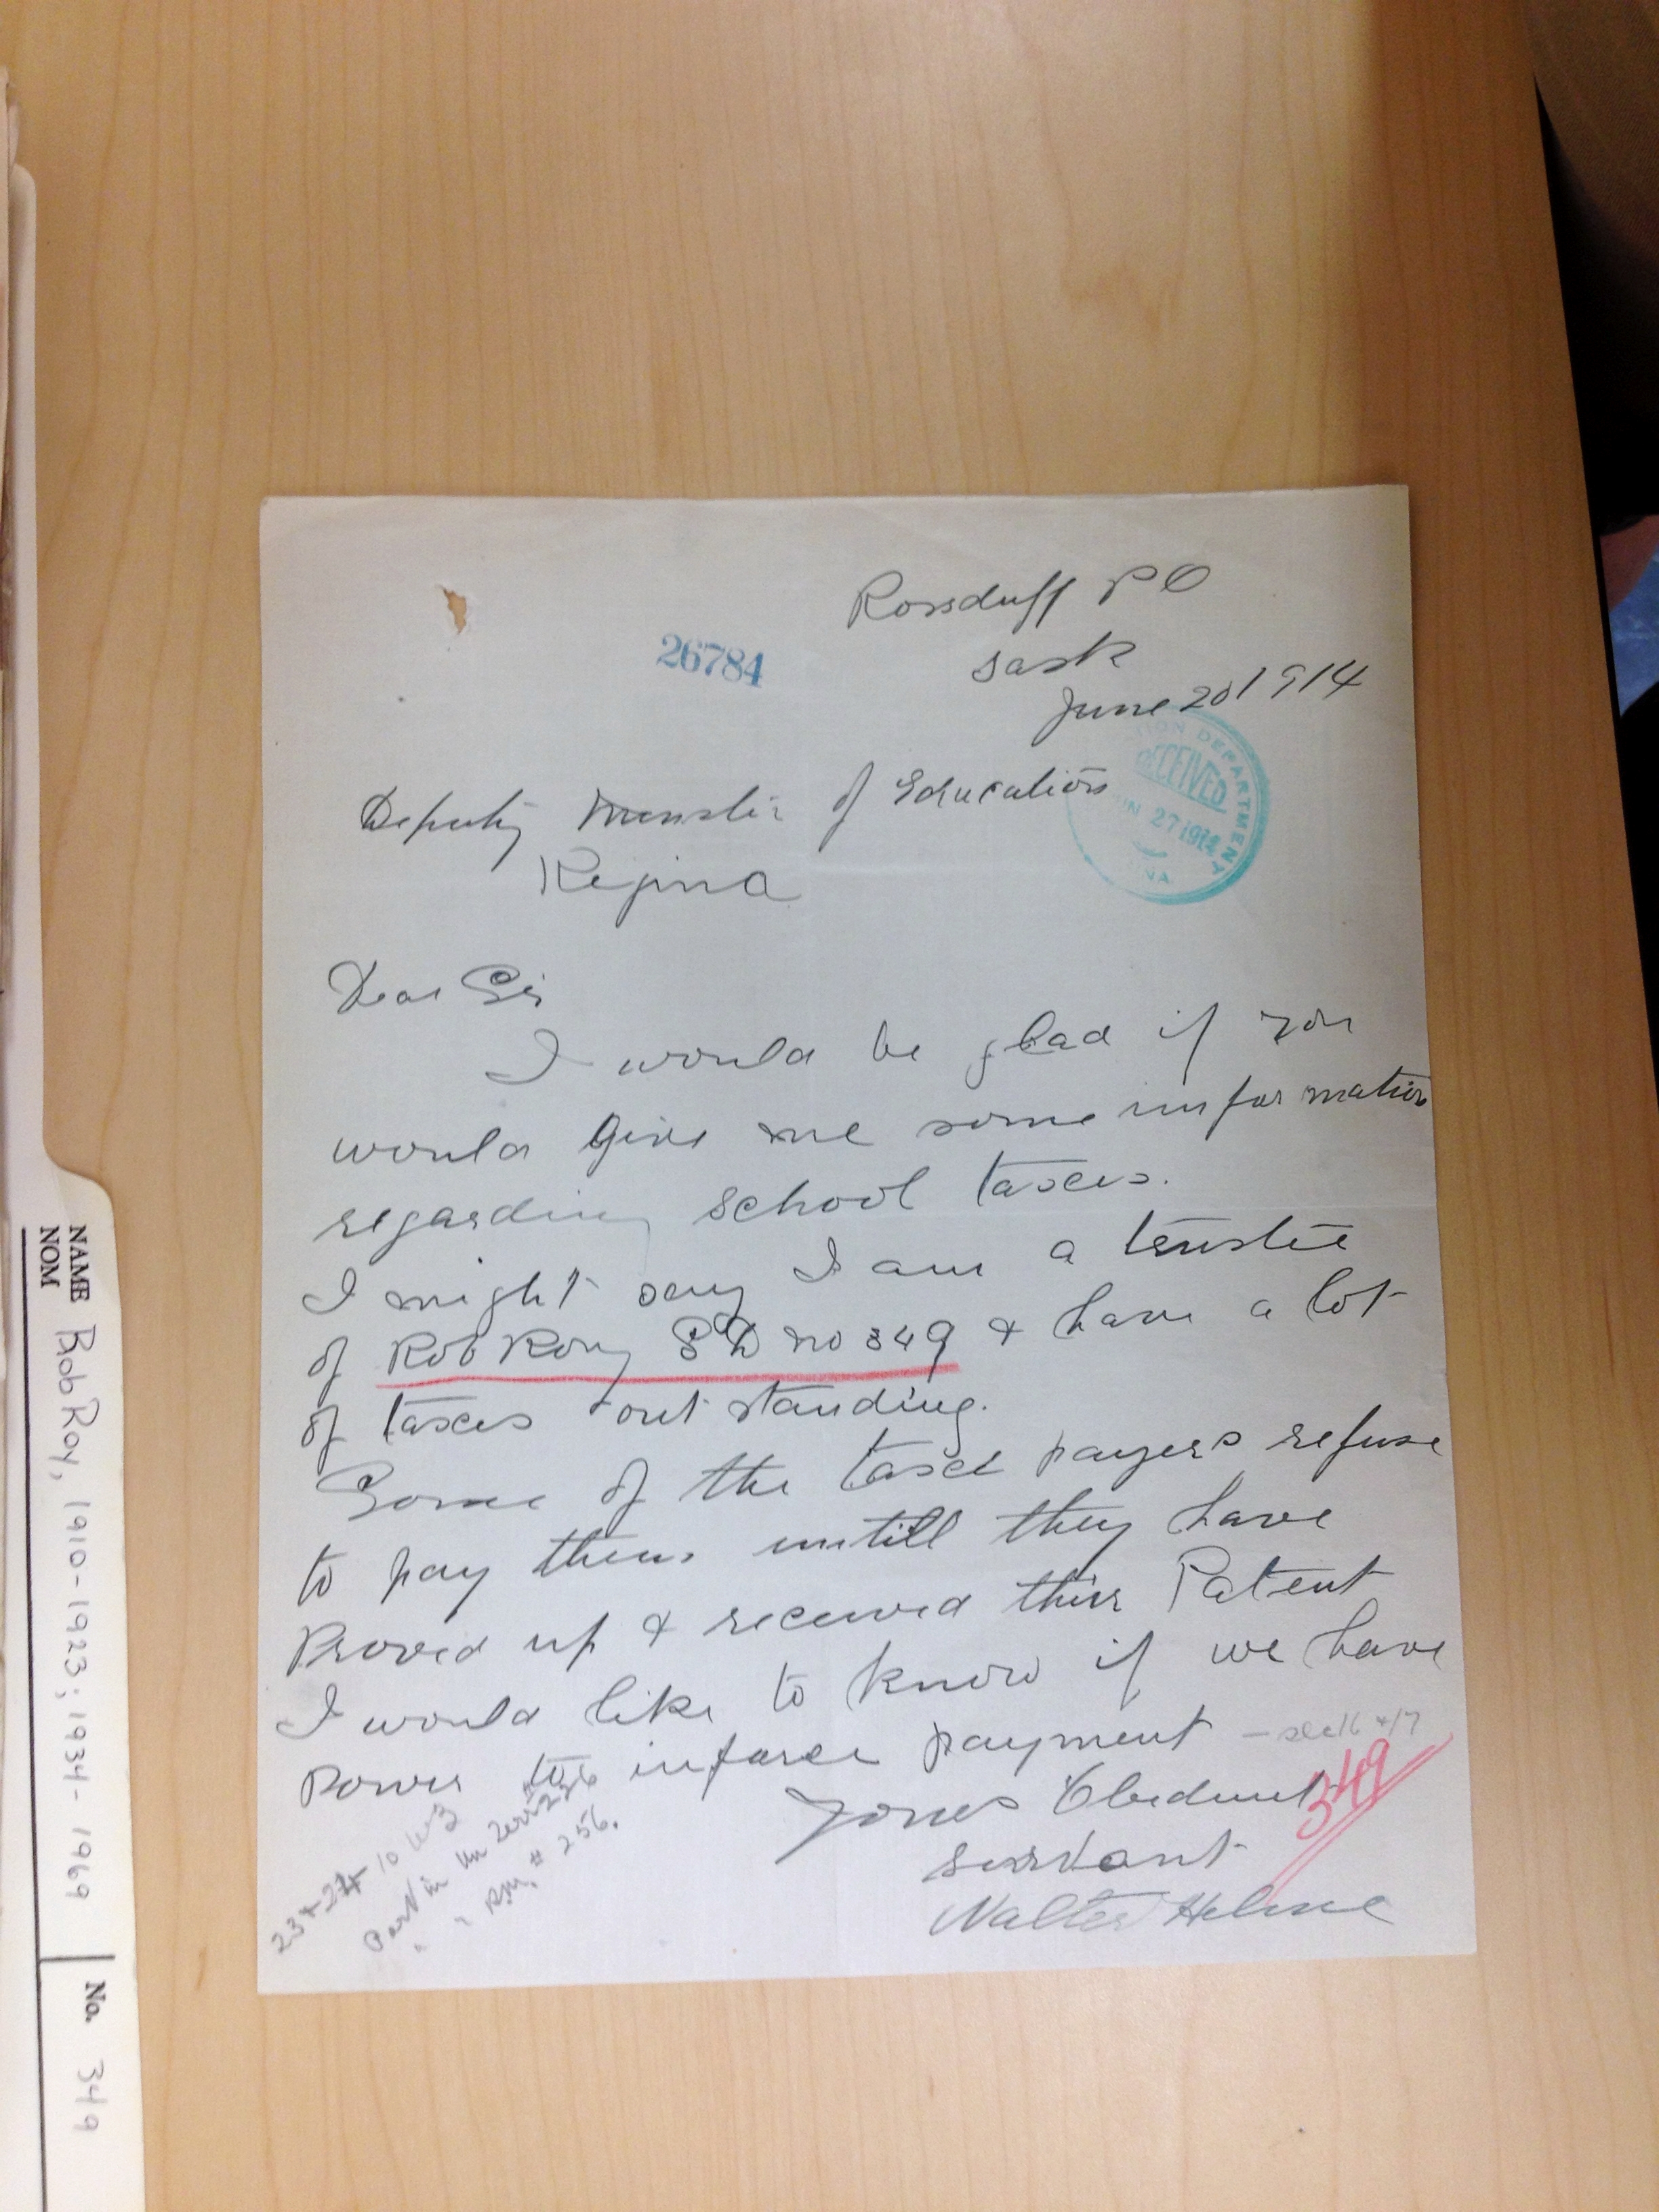 Rossduff P O
Sask
June 20 1914
26784
TION DEPARTMENT
RECEIVED
JUN 27 1914
NA.
Deputy Minister of Education
Regina
Dear Sir
I would be glad if you
would give me some information
regarding school taxes.
I might say I am a trustee
of Rob Roy S D no 349 & have a lot
of taxes out standing.
Some of the taxe payers refuse
to pay them untill they have
Proved up & received thier Patent
I would like to know if we have
Power to inforce payment
349
Yours Obedient
servant
Walter Helme
23 + 24 - 10 W3
Part in
R.M. # 256.
NAME
NOM
Rob Roy, 1910-1923; 1934-1969
No. 349